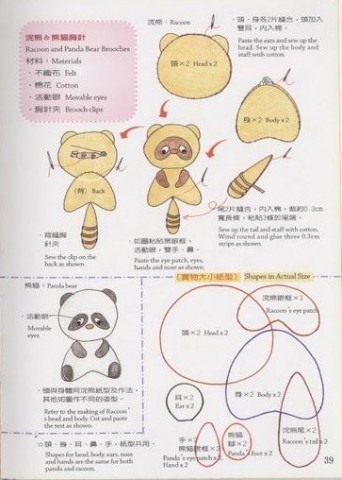 浣熊&熊貓胸針
Racoon and Panda Bear Brooches
材料：Materials
· 不織布 Felt
· 棉花 Cotton
· 活動眼 Movable eyes
· 胸針夾 Brooch clips
浣熊：Racoon
· 頭、身各2片縫合，頭加入
雙耳，內入棉。
Paste the ears and sew up the
head. Sew up the body and
staff with cotton.
頭×2 Head x 2
身×2 Body x 2
(背) Back
· 背縫胸
針夾
Sew the clip on the
back as shown.
· 如圖粘貼黑眼框、
活動眼、雙手、鼻。
Paste the eye patch, eyes,
hands and nose as shown.
· 尾2片縫合，內入棉，剪約0.3cm
寬長條，粘貼3條於尾端。
Sew up the tail and staff with cotton.
Wind round and glue three 0.3cm
strips as shown.
熊貓：Panda bear
· 活動眼
Movable
eyes
· 頭與身體同浣熊紙型及作法，
其他如圖作不同的造型。
Refer to the making of Racoon'
s head and body. Cut and paste
the rest as shown.
☆頭、身、耳、鼻、手，紙型共用。
Shapes for head, body, ears, nose
and hands are the same for both
panda and racoon.
〔實物大小紙型〕 Shapes in Actual Size
浣熊眼框×1
Racoon's eye patch
頭×2 Head x 2
身×2 Body x 2
耳×2
Ear x 2
手×2
熊貓眼框×2
Panda's eye patch x 2
Hand x 2
熊貓
腳×2
Panda's foot x 2
浣熊尾×2
Racoon's tail x 2
39